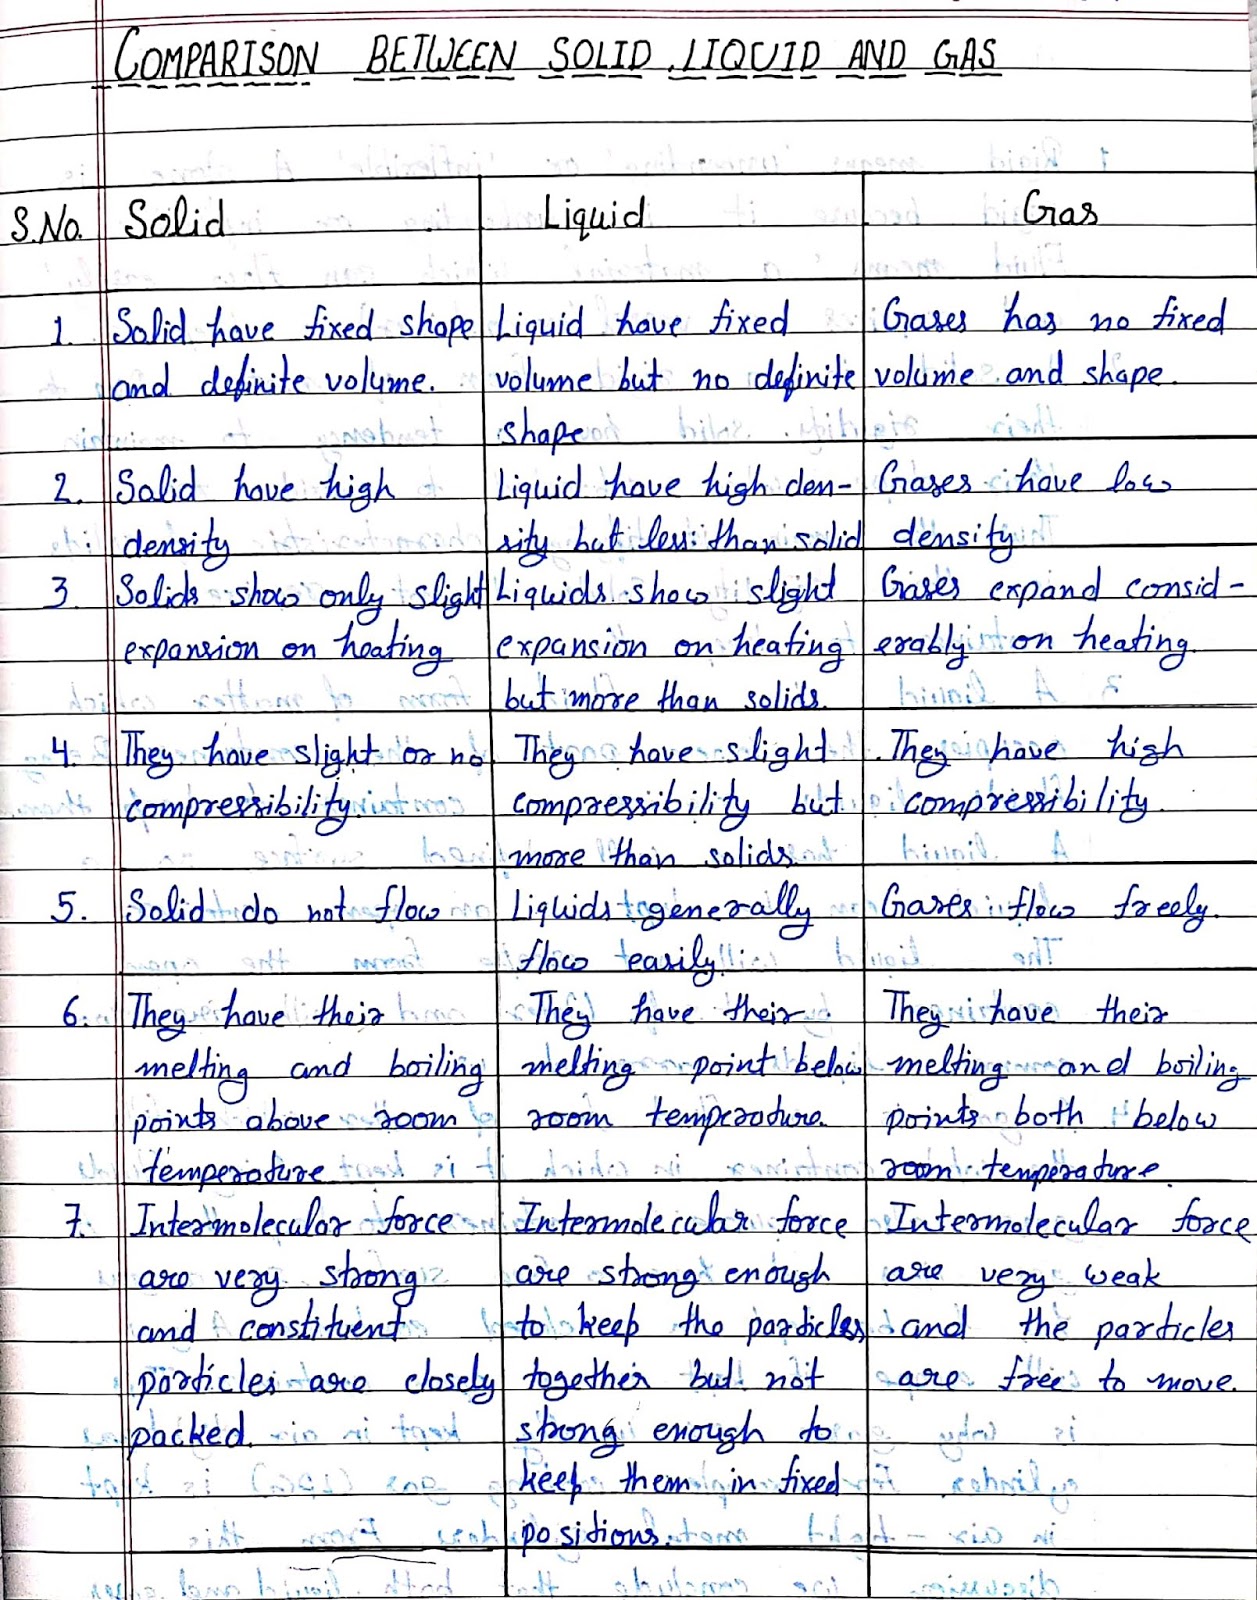 COMPARISON BETWEEN SOLID, LIQUID AND GAS
S.No. Solid Liquid Gas
1. Solid have fixed shape Liquid have fixed Gases has no fixed
and definite volume. volume but no definite volume and shape.
shape
2. Solid have high Liquid have high den- Gases have low
density sity but less than solid density
3. Solids show only slight Liquids show slight Gases expand consid-
expansion on heating expansion on heating erably on heating.
but more than solids.
4. They have slight or no They have slight They have high
compressibility. compressibility but compressibility.
more than solids.
5. Solid do not flow Liquids generally Gases flow freely.
flow easily.
6. They have their They have their They have their
melting and boiling melting point below melting and boiling
points above room room temperature. points both below
temperature room temperature.
7. Intermolecular force Intermolecular force Intermolecular force
are very strong are strong enough are very weak
and constituent to keep the particles and the particles
particles are closely together but not are free to move.
packed. strong enough to
keep them in fixed
positions.